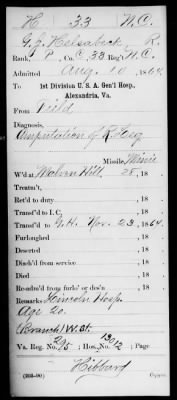 H 33 N.C.
G. J. Helsabeck R.
Rank, P, Co. C, 33 Reg't N.C.
Admitted Aug. 10, 1864.
To
1st Division U. S. A. Gen'l Hosp.,
Alexandria, Va.
From Field
Diagnosis,
Amputation of R. Leg
Missile, Minie
W'd at Malvern Hill, 28, 18 .
Treatm't,
Ret'd to duty , 18 .
Transf'd to I. C. , 18 .
Transf'd to G.H. Nov. 23, 1864.
Furloughed , 18 .
Deserted , 18 .
Disch'd from service , 18 .
Died , 18 .
Re-adm'd from furlo' or des'n , 18 .
Remarks Lincoln Hosp.
Age 20.
Branch/W. St.
Va. Reg. No. 295; Hos. No. 13012; Page
Hibbard
Copyist.